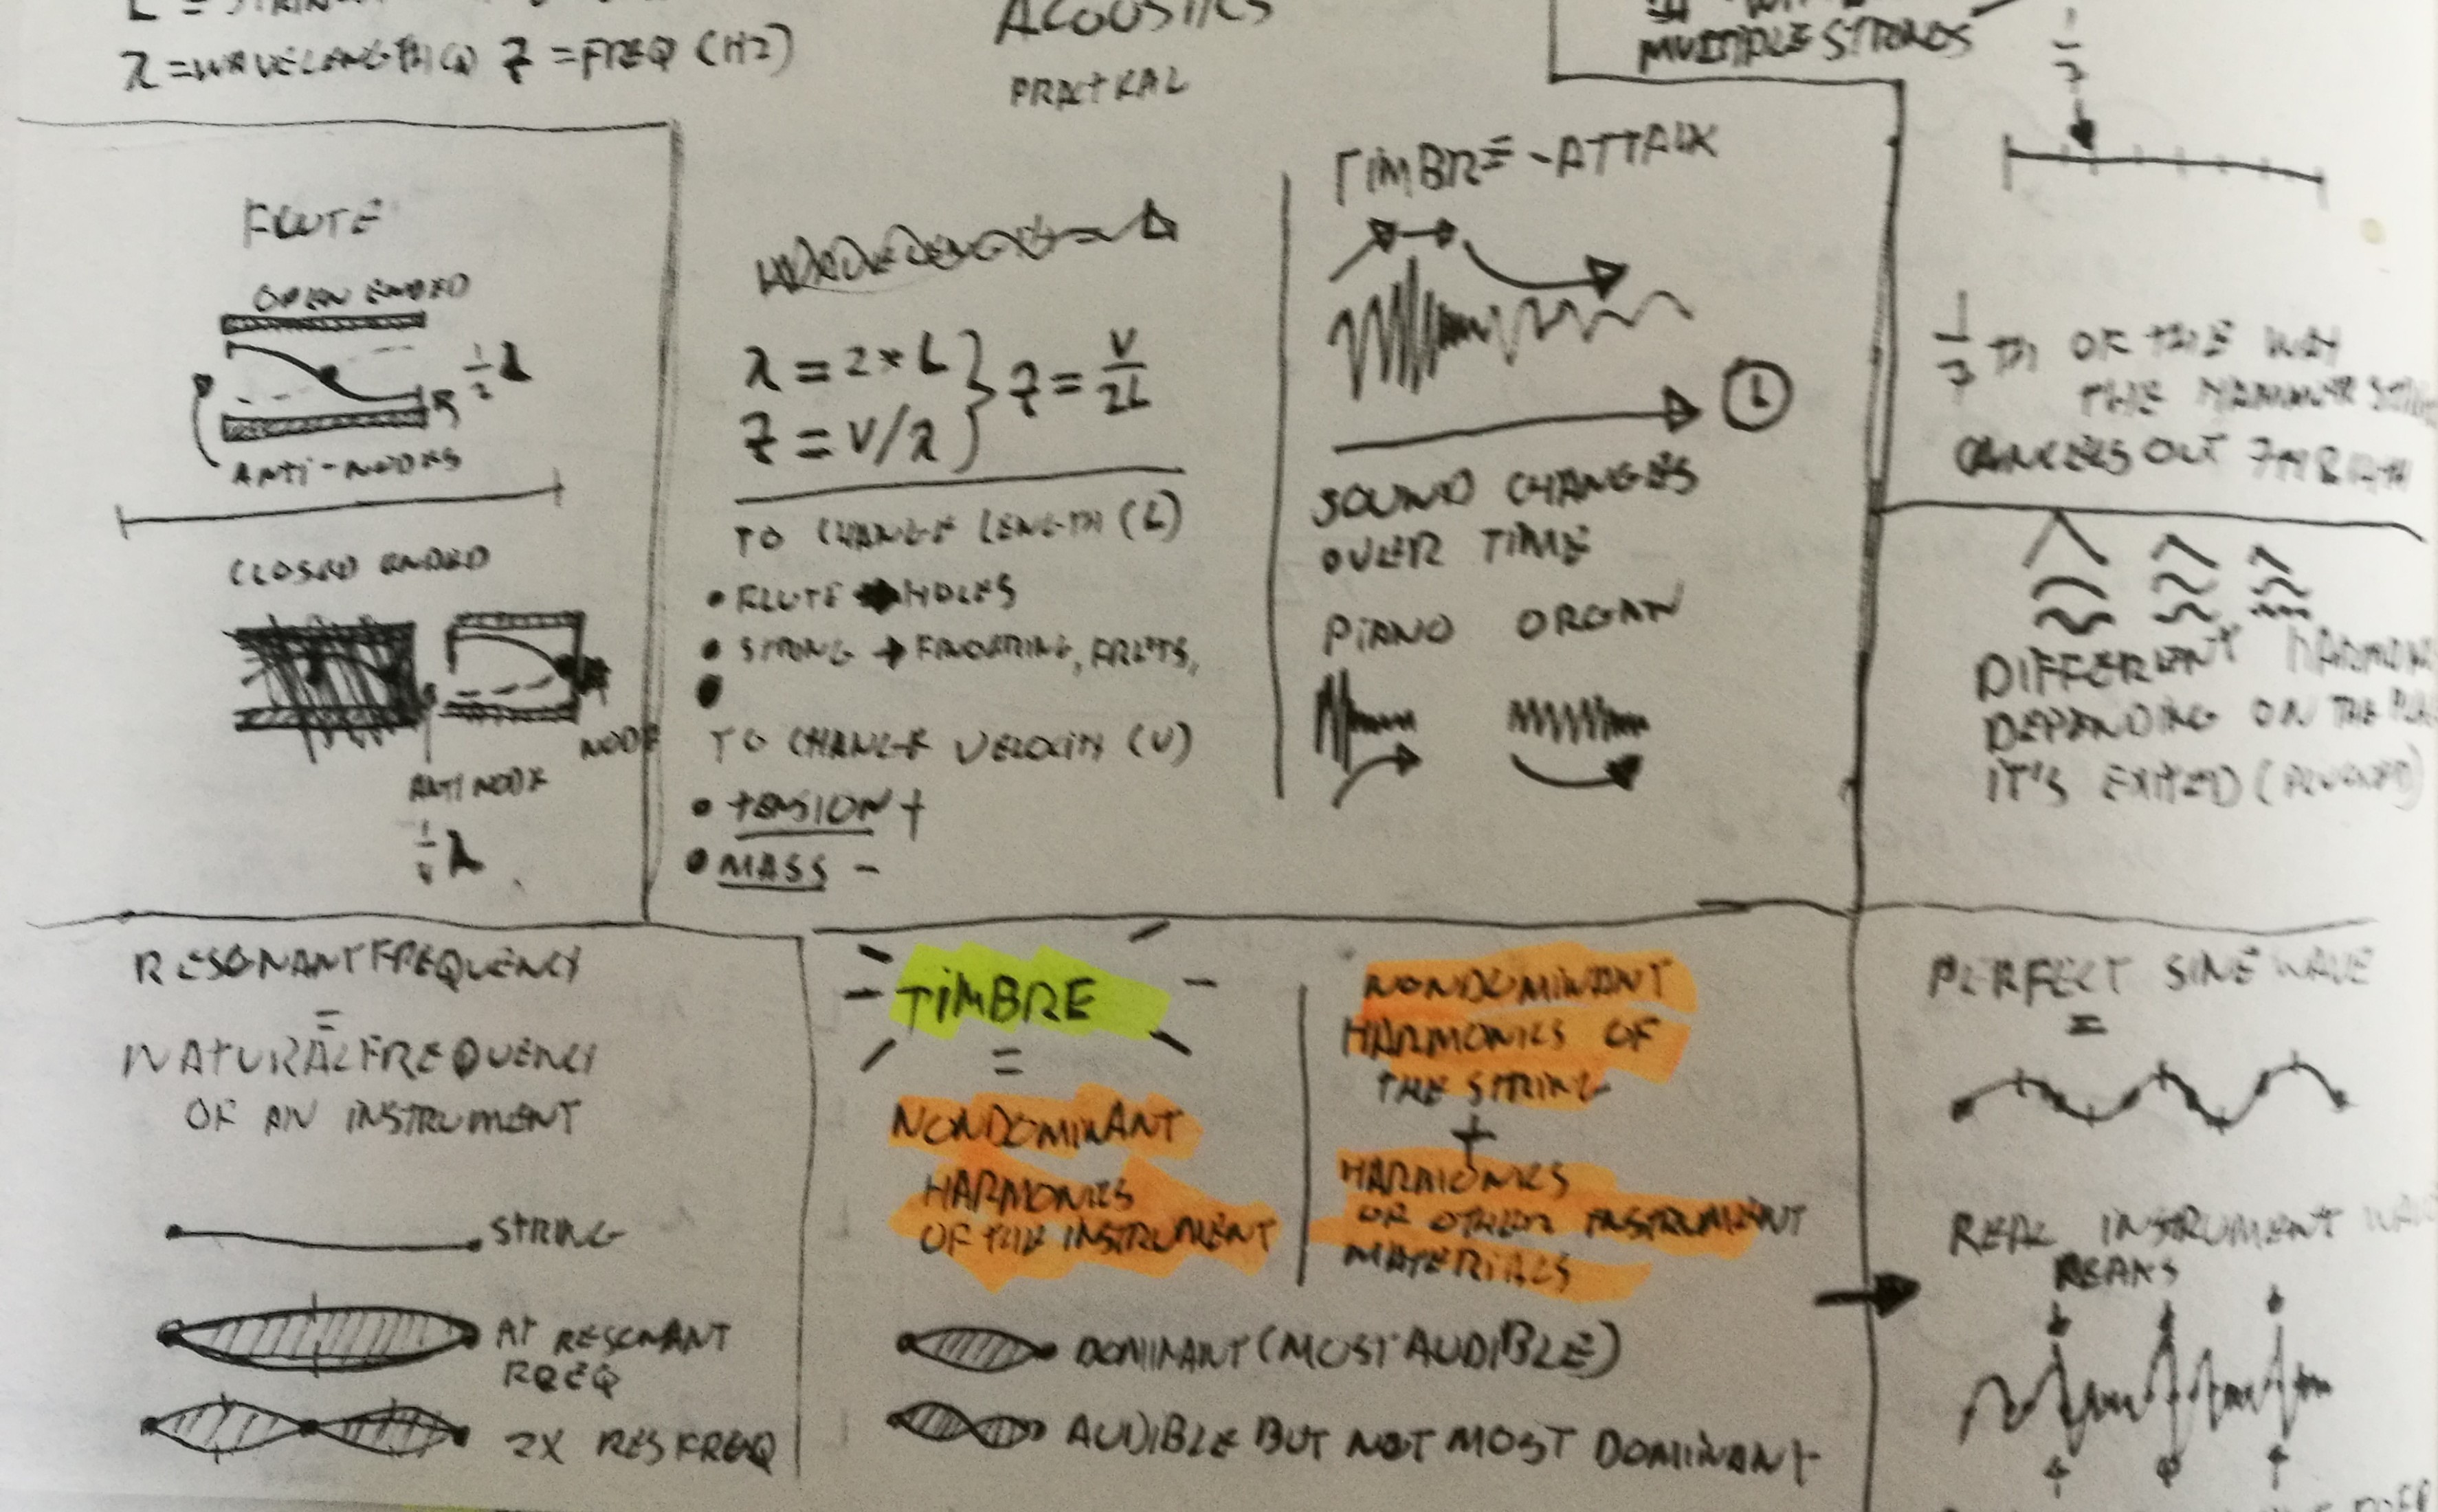 λ = WAVELENGTH
f = FREQ (HZ)
ACOUSTICS
PRACTICAL
MULTIPLE STRINGS
1/7
FLUTE
OPEN ENDED
1/2 λ
ANTI-NODES
CLOSED ENDED
NODE
ANTI NODE
1/4 λ
λ = 2 * L
f = V/λ
f = V/2L
TO CHANGE LENGTH (L)
• FLUTE → HOLES
• STRING → FINGERING, FRETS,
TO CHANGE VELOCITY (V)
• TENSION +
• MASS -
TIMBRE - ATTAIK
SOUND CHANGES
OVER TIME
PIANO ORGAN
1/7 TH OF THE WAY
THE HAMMER
CANCELS OUT 7TH
DIFFERENT
DEPENDING ON THE
IT'S EXITED (PLUCKED)
RESONANT FREQUENCY
=
NATURAL FREQUENCY
OF AN INSTRUMENT
STRING
AT RESONANT
FREQ
2X RES FREQ
TIMBRE
=
NONDOMINANT
HARMONICS
OF THE INSTRUMENT
NONDOMINANT
HARMONICS OF
THE STRING
+
HARMONICS
OF OTHER INSTRUMENT
MATERIALS
DOMINANT (MOST AUDIBLE)
AUDIBLE BUT NOT MOST DOMINANT
PERFECT SINE WAVE
=
REAL INSTRUMENT
PEAKS